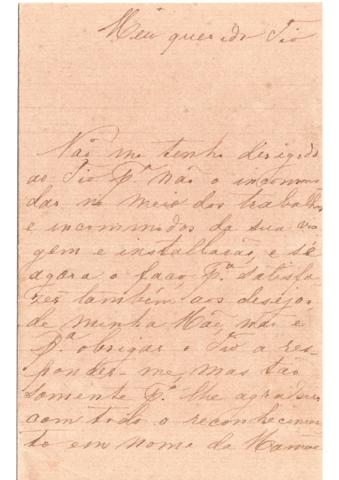 Meu querido Tio
Não me tenho dirigido
ao Tio pª não o incommo
dar no meio dos trabalhos
e incommodos da sua via
gem e installação, e só
agora o faço, pª satisfa
zer também aos desejos
de minha Mãe, não é
pª obrigar o Tio a res-
ponder-me, mas tão
somente pª lhe agradecer
com todo o reconhecimen
to em nome da Mamãe